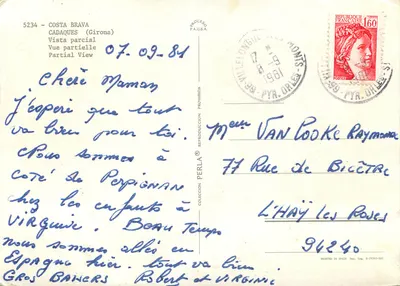 5234 - COSTA BRAVA
CADAQUES (Girona)
Vista parcial
Vue partielle
Partial View
07-09-81
Chère Maman
J'espère que tout
va bien pour toi.
Nous sommes à
coté de Perpignan
chez les enfants à
VIRGINIE. BEAU Temps
nous sommes allés en
ESPAGNE hier. tout va bien.
GROS BAISERS Robert et VIRGINIE
COLECCION PERLA
REPRODUCCION PROHIBIDA
17
8-9
1981
66 PYR. ORLES
1,60
Mme VAN COOKE Raymonde
77 Rue de BICÊTRE
L'HAŸ les Roses
94240